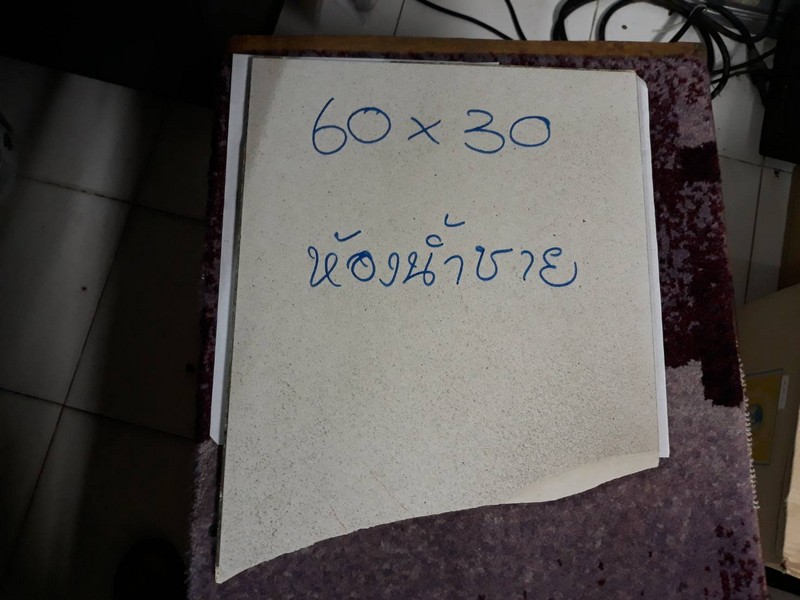 60 × 30
ห้องน้ำชาย